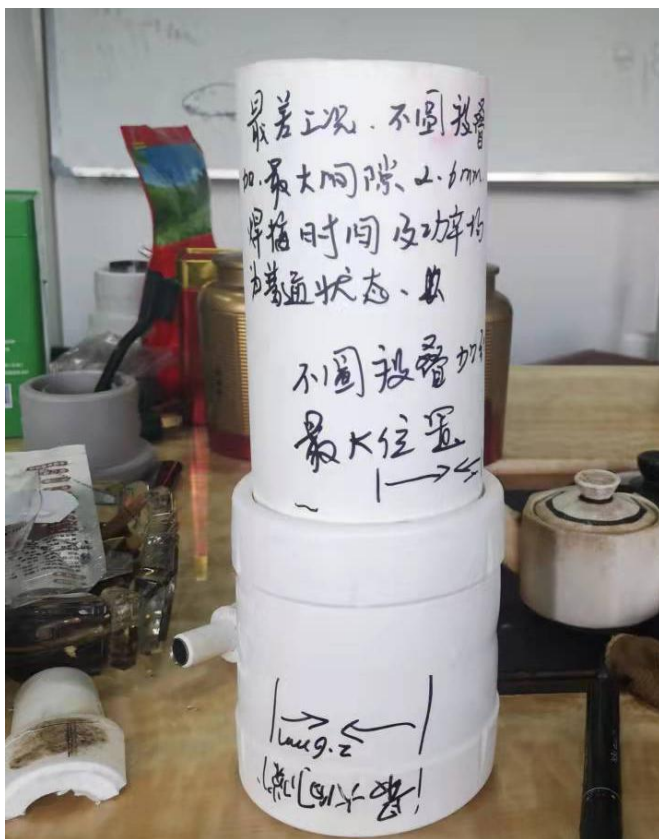 最差工况.不圆被叠
加.最大间隙.2.6mm
焊接时间及功率均
为普通状态.
不圆被叠加至
最大位置
2.6mm
最大间隙